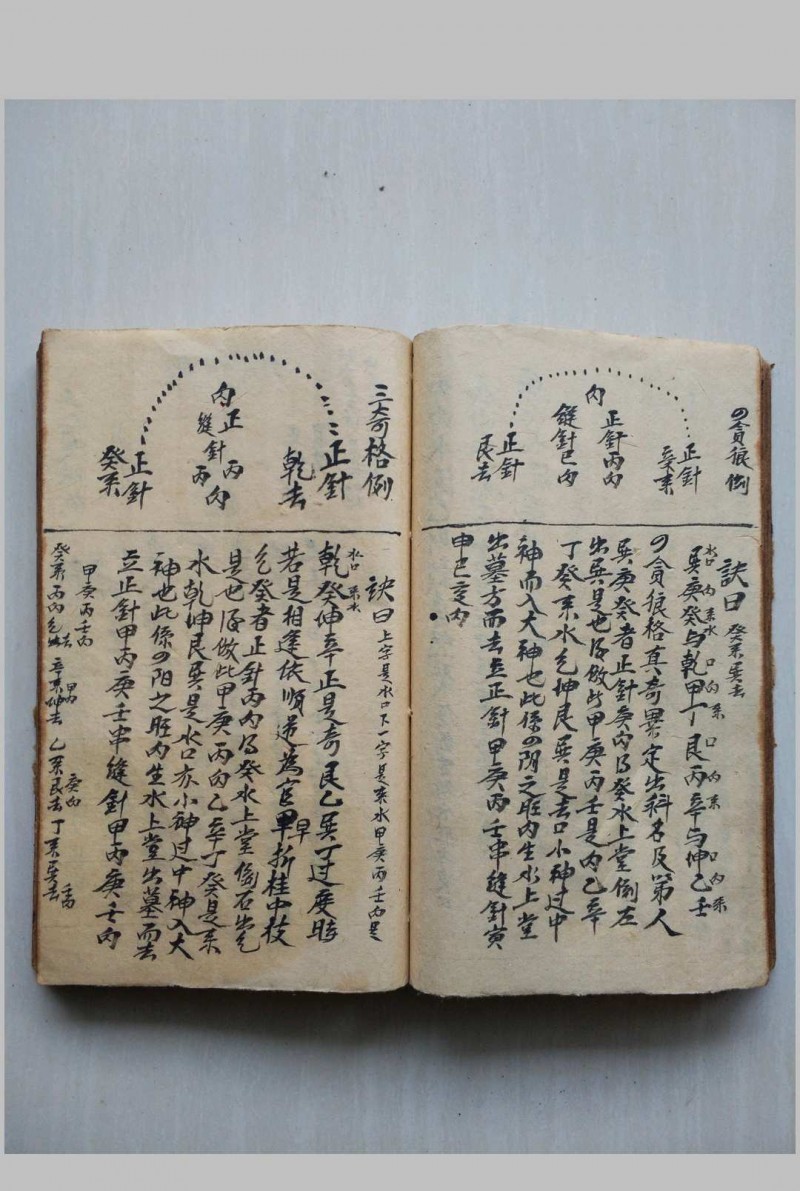 の貪狼例
正針
癸来
正針丙向
向
縫針巳向
正針
艮去
訣曰 癸来巽去
水口 向 来水 口 向 来 口 向 来 口 向 来
巽庚癸与乾甲丁艮丙辛与坤乙壬
の貪狼格真奇異定出科名及第人
巽庚癸者正針庚向得癸水上堂倒左
出巽是也馀倣此甲庚丙壬是向乙辛
丁癸来水乾坤艮巽是去口小神过中
神而入大神也此係の阴之旺向生水上堂
出墓方而去立正針甲庚丙壬串縫針寅
申巳亥向
三奇格例
正針
乾去
向
正針丙向
縫丙
正針
癸来
訣曰 上字是水口下一字是来水甲庚丙壬向是
水口 来水
乾癸坤辛正是奇艮乙巽丁过度時
若是相逢依順逆為官早折桂中枝
乾癸者正針丙向得癸水上堂倒右出乾
是也馀倣此甲庚丙向乙辛丁癸是来
水乾坤艮巽是水口亦小神过中神入大
神也此係の阳之旺向生水上堂出墓而去
立正針甲丙庚壬串縫針甲丙庚壬向
甲庚丙壬向
癸来丙向乾去 辛来坤去 甲向 乙来艮去 庚向 丁来巽去 壬向